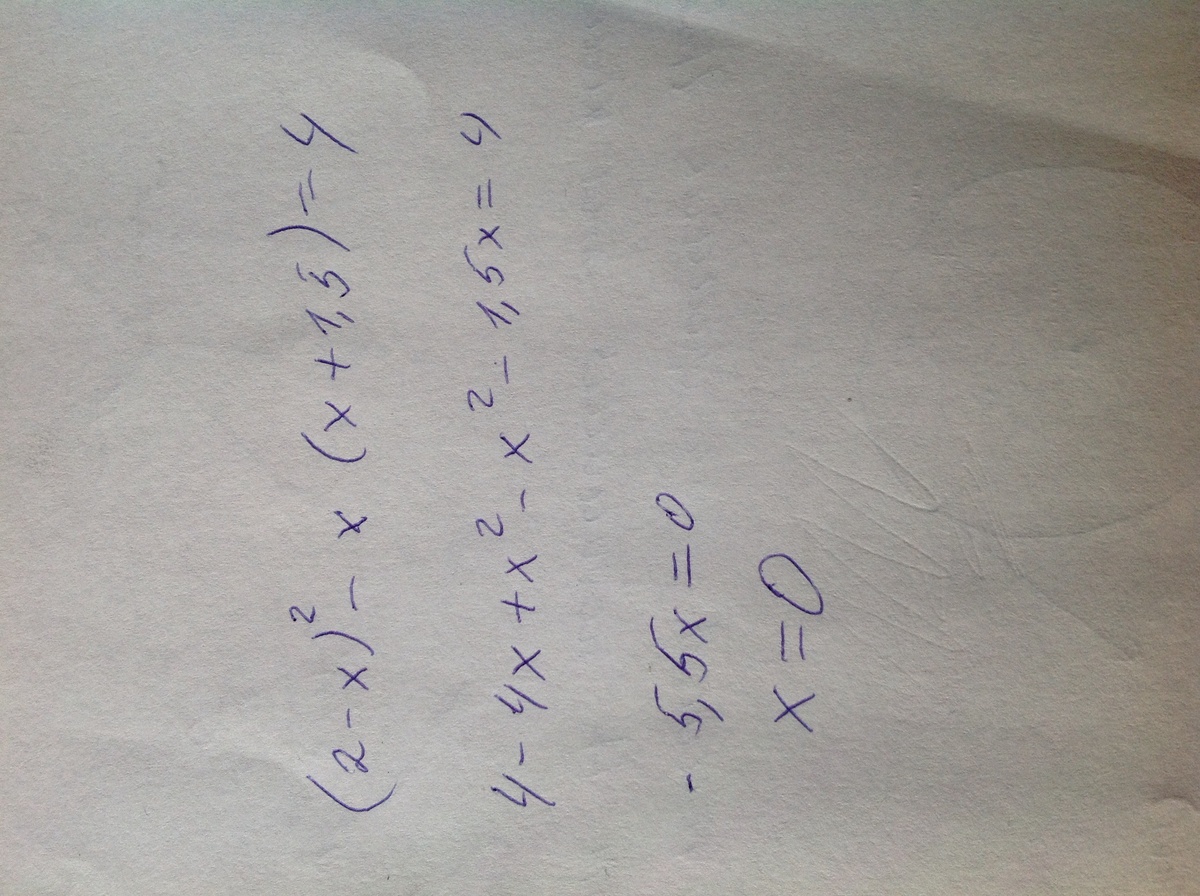 (2-x)²- x (x+1,5)=4
4-4x+x²-x²-1,5x=4
-5,5x=0
x=0